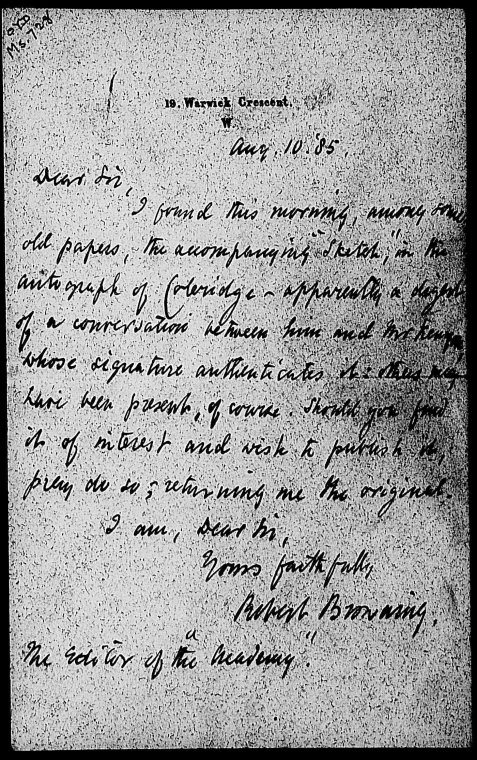 Ms. 728
19, Warwick Crescent,
W.
Aug. 10. '85.
Dear Sir,
I found this morning, among some
old papers, the accompanying "Sketch," in the
autograph of Coleridge - apparently a digest
of a conversation between him and Mr Kenyon,
whose signature authenticates it: others may
have been present, of course. Should you find
it of interest and wish to publish it,
pray do so, returning me the original.
I am, Dear Sir,
Yours faithfully
Robert Browning.
The Editor of "the Academy".